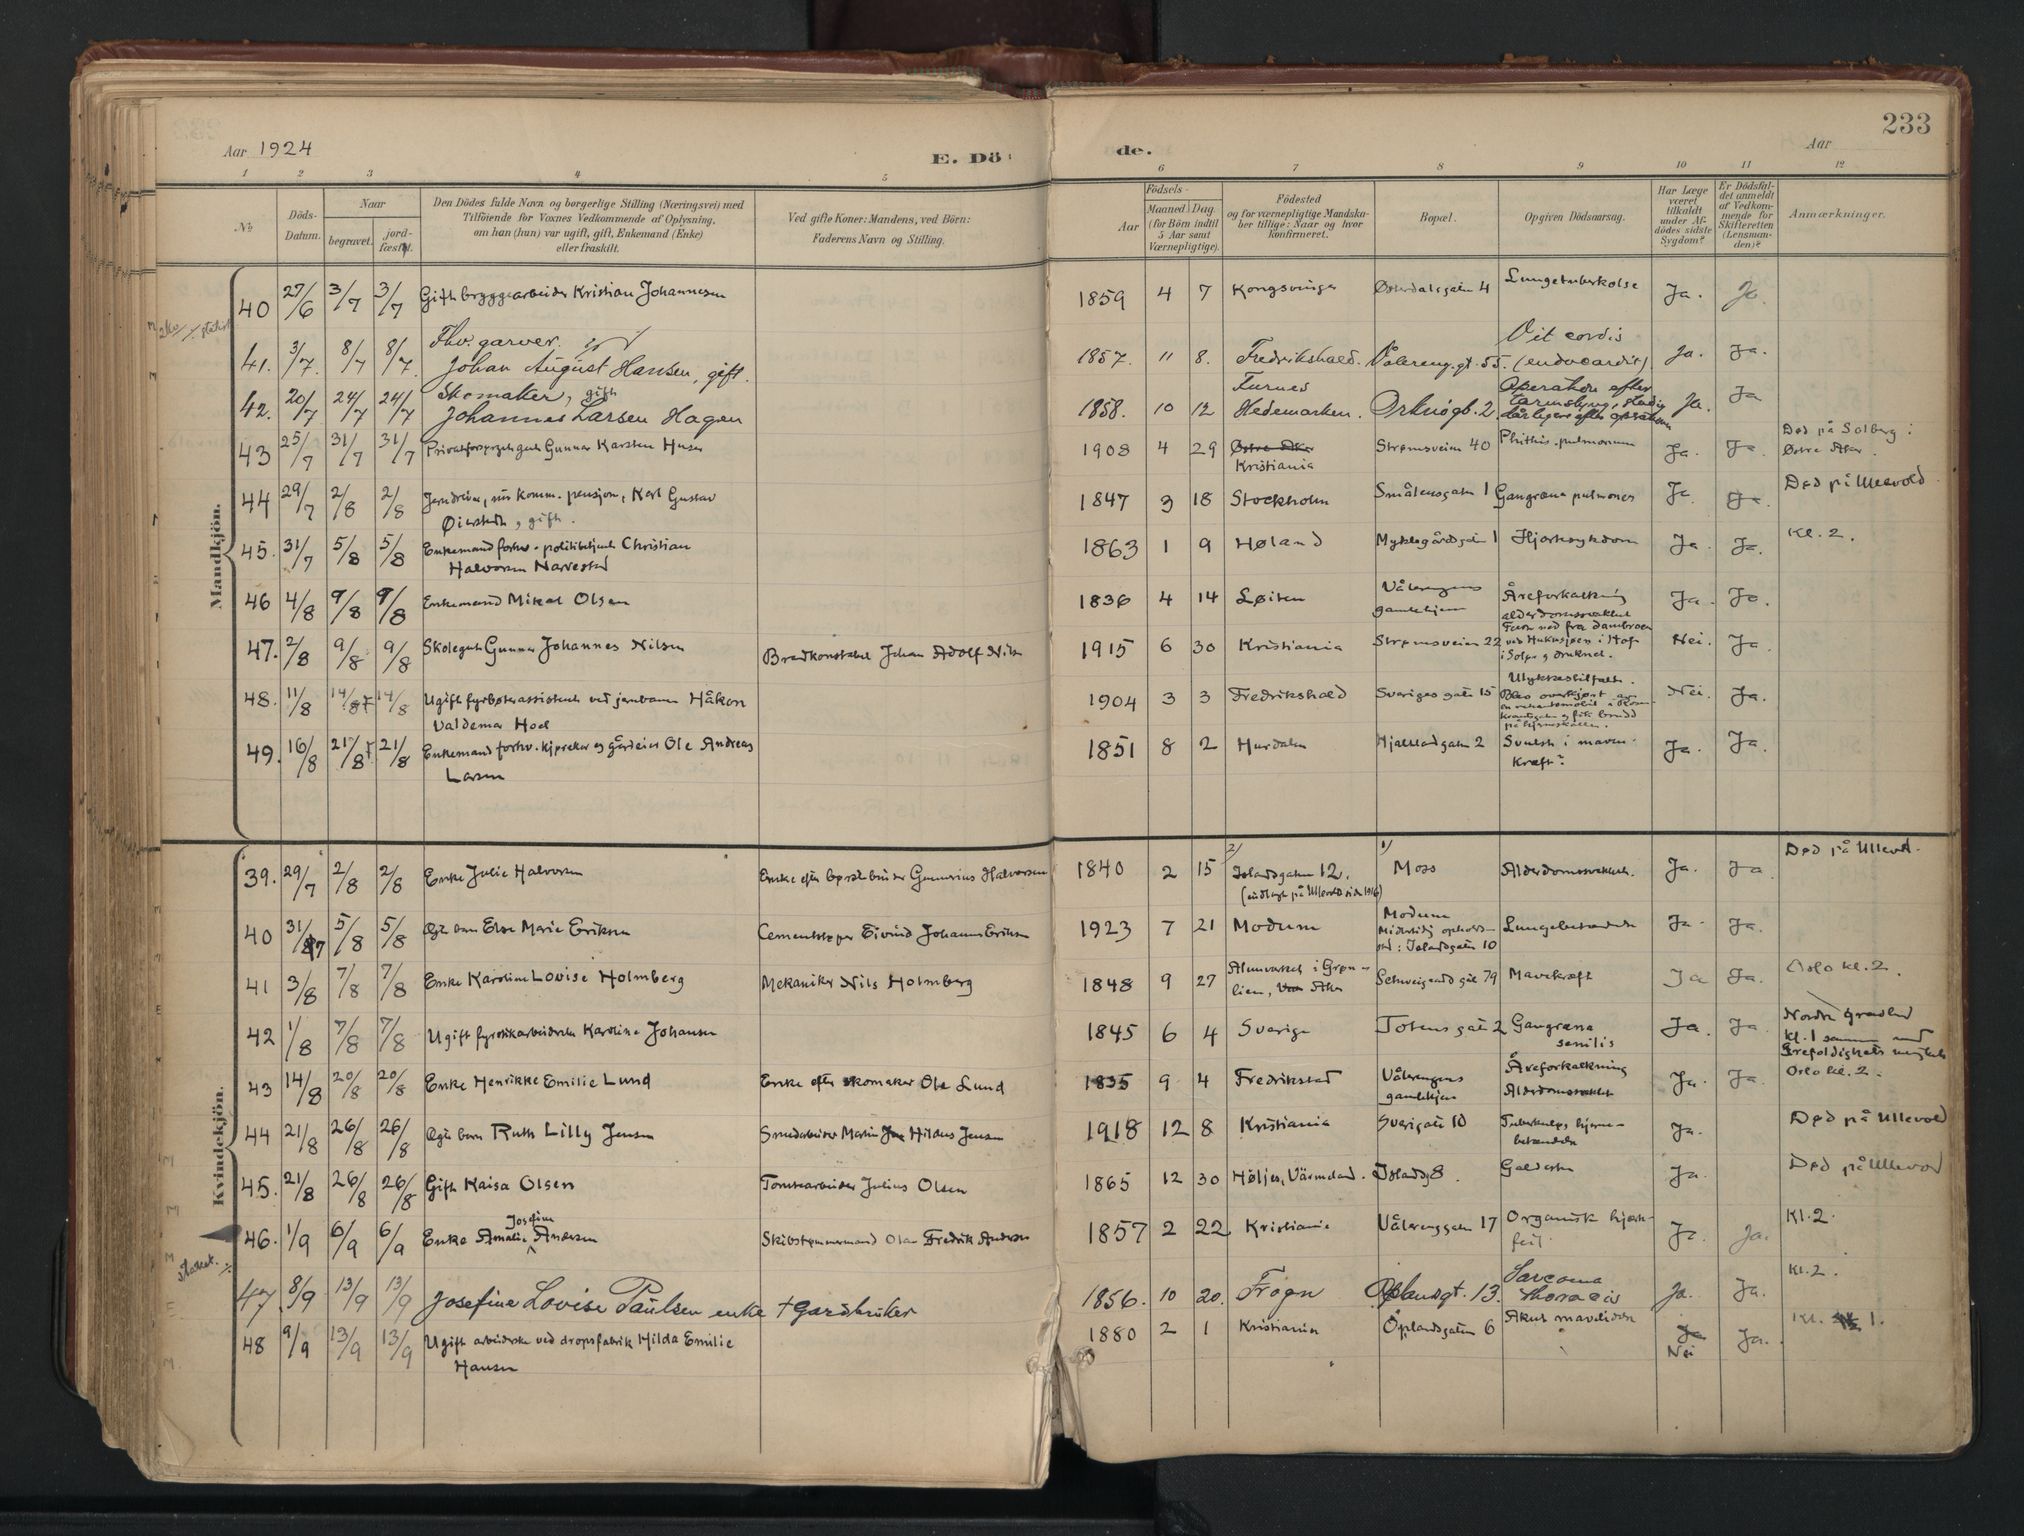 233
Aar 1924
E. Dö
de.
Aar
1 2 3 4 5 6 7 8 9 10 11 12
№
Döds-Datum.
Naar
begravet.
jord-fæstet.
Den Dödes fulde Navn og borgerlige Stilling (Næringsvei) med
Tilföiende for Voxnes Vedkommende af Oplysning,
om han (hun) var ugift, gift, Enkemand (Enke)
eller fraskilt.
Ved gifte Koner: Mandens, ved Börn:
Faderens Navn og Stilling.
Aar
Födsels-
Maaned Dag
(for Börn indtil
5 Aar samt
Værnepligtige).
Födested
og for værnepligtige Mandska-
ber tillige: Naar og hvor
konfirmeret.
Bopæl.
Opgiven Dödsaarsag.
Har Læge
været
tilkaldt
under Af-
dödes sidste
Sygdom?
Er Dödsfal-
det anmeldt
af Vedkom-
mende for
Skifteretten
(Lensman-
den)?
Anmærkninger.
Mandkjön.
40 27/6 3/7 3/7 Gift bryggearbeider Kristian Johannesen 1859 4 7 Kongsvinger Østerdalsgaten 4 Lungetuberkolse Ja. Ja.
Fhv. garver.
41. 3/7. 8/7 8/7 Johan August Hansen, gift. 1857. 11 8. Fredrikshald. Vålereng.gt. 55. Vit cordis
(endocardit) Ja. Ja.
Skomaker, gift
42. 20/7 24/7 24/7 Johannes Larsen Hagen 1858. 10 12 Furnes
Hedemarken. Orknøgt. 2. Operation efter
tarmslyng, stadig
dårligere efter operationen Ja. Ja
43 25/7 31/7 31/7 Gunnar Karsten Huser 1908 4 29 Østre Aker
Kristiania Strømsveien 40 Phithis. pulmonum Ja. Ja. Død på Solberg i
Østre Aker.
44 29/7 2/8 2/8 komm. pensjon, Karl Gustav
gift. 1847 3 18 Stockholm Smålensgaten 1 Gangræna pulmones Ja Ja. Død på Ullevold
45. 31/7 5/8 5/8 Enkemand forhv. politibetjent Christian
Halvorsen Narvestad 1863 1 9 Høland Myklegårdsgaten 1 Hjertesykdom Ja. Ja. Kl. 2.
46 4/8 9/8 9/8 Enkemand Mikal Olsen 1836 4 14 Løiten Vålerengens
gamlehjem Åreforkalkning
alderdomssvakhet Ja. Ja.
47. 2/8 9/8 9/8 Skolegut Gunnar Johannes Nilsen Brandkonstabel Johan Adolf Nilsen 1915 6 30 Kristiania Strømsveien 22 Faldt ned fra dambroen
ved i Hof
i Solør og druknet. Nei. Ja.
48. 11/8 14/8 14/8 Ugift fyrbøterassistent ved jernbanen Håkon
Valdemar Hoel 1904 3 3 Fredrikshald Sverigesgaten 15 Ulykkestilfælde.
Blev overkjørt av
en i Rosen-
krantzgaten og fik brudd
på hjerneskallen. Nei. Ja.
49. 16/8 21/8 21/8 Enkemand forhv. kjørekar og gårdeier Ole Andreas
Larsen 1851 8 2 Hurdalen Hjaltlandsgaten 2 Svulst i maven.
Kræft? Ja. Ja.
Kvindekjön.
39. 29/7 2/8 2/8 Enke Julie Halvorsen Enke efter børstebinder Gunerius Halvorsen 1840 2 15 2/ Islandsgaten 12.
(indlagt på Ullevold siden 1916) 1/ Moss Alderdomssvakhet. Ja. Ja. Død på Ullevål.
40 31/7 5/8 5/8 Egte barn Else Marie Eriksen Cementstøper Eivind Johannes Eriksen 1923 7 21 Modum Modum
Midlertidig opholds-
sted: Islandsgaten 10 Lungebetændelse Ja. Ja.
41 3/8 7/8 7/8 Enke Karoline Lovise Holmberg Mekaniker Nils Holmberg 1848 9 27 Alunverket i Grøn-
lien, Aker Schweigaardsgate 79 Mavekræft Ja Ja. Oslo kl. 2.
42 1/8 7/8 7/8 Ugift fyrstikkarbeiderske Karoline Johansen 1845 6 4 Sverige Totensgaten 2 Gangræna
senilis Ja. Ja Nordre Gravlund
kl. 1 sammen med
43 14/8 20/8 20/8 Enke Henrikke Emilie Lund Enke efter skomaker Ole Lund 1835 9 4 Fredrikstad Vålerengens
gamlehjem Åreforkalkning
Alderdomssvakhet Ja. Ja. Oslo kl. 2.
44 21/8 26/8 26/8 Egte barn Ruth Lilly Jensen Smedarbeider Martin Hildus Jensen 1918 12 8 Kristiania Sverigesgaten 10 Tuberkuløs hjerne-
betændelse Ja. Død på Ullevold
45. 21/8 26/8 26/8 Gift Kaisa Olsen Tomtearbeider Julius Olsen 1865 12 30 Høljes, Värmeland. Islandsg 8. Galdesten Ja. Død på Ullevold
46. 1/9 6/9 6/9 Enke Amalie Josefine Andersen Skibstømmermand Olaus Fredrik Andersen 1857 2 22 Kristiania Vålerenggaten 17 Organisk hjerte-
feil. Ja. Ja. Kl. 2.
47 8/9 13/9 13/9 Josefine Lovise Paulsen enke † Gardbruker 1856. 10 20. Frogn Oplandsgt. 13. Sarcoma
thoracis Ja. Ja. Kl. 2.
48 9/9 13/9 13/9 Ugift arbeiderske ved dropsfabrik Hilda Emilie
Hansen 1880 2 1 Kristiania Oplandsgaten 6 Akut mavelidelse Ja
Nei Ja. Kl. 1.